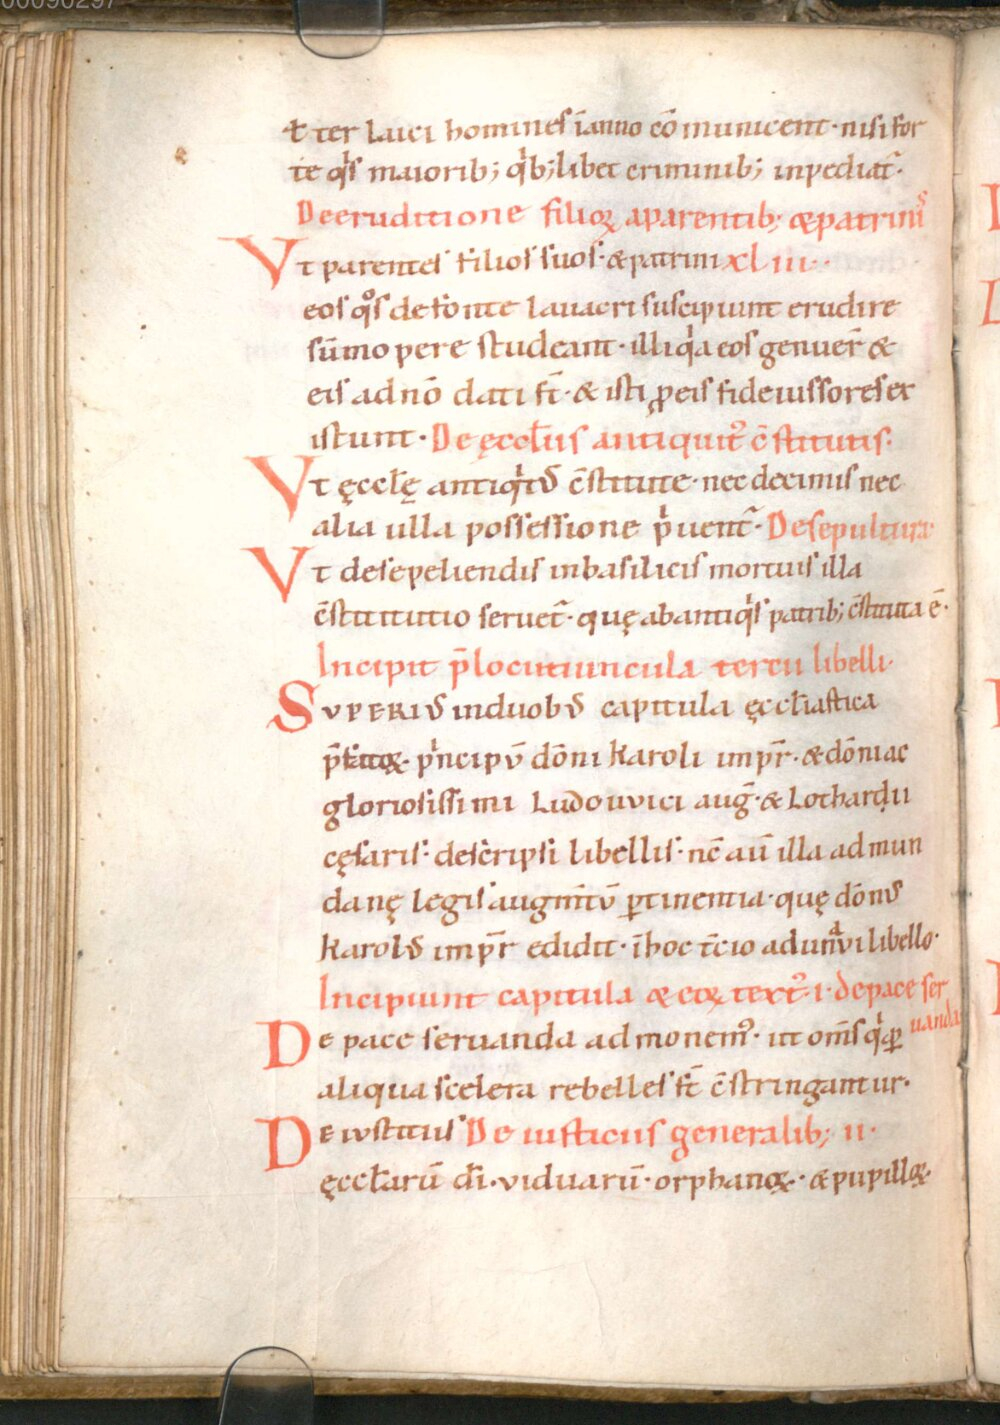 00090297
t ter laici homines ĩanno cõmunicent· nisi for
te qͥs maiorib; qͥb;libet criminib; inpediat̃·
De eruditione filioꝝ aparentib; &patrinis
Vt parentes filios suos·&patrini xliii·
eos qͦs defonte lauacri suscipiunt erudire
sũmo pere studeant· illi qͥa eos genuer̃ &
eis ad nõ dati st̃· & isti ꝓeis fideiussores ex
istunt· De ęccl̃iis antiquit᷒ c̃stitutis·
Vt ęccl̃ę antiqͥtꝰ c̃stitute· nec decimis nec
alia ulla possessione pͥuent̃· De sepultura
Vt desepeliendis inbasilicis mortuis illa
c̃stitutio seruet̃· quę abantiqͥs patrib; c̃stituta ẽ·
Incipit p̃locutiuncula tercii libelli·
Superiꝰ induobꝰ capitula ęccl̃iastica
pͥncipũ dõni karoli impr̃·&dõni ac
gloriosissimi Ludouuici aug̃·& Lotharii
cęsaris· descripsi libellis· nc̃ aũ illa ad mun
danę legis augm̃tũ ꝑtinentia· quę dõnꝰ
karolꝰ impr̃ edidit· ĩhoc t̃cio adunaui libello·
Incipiunt capitula & eoꝝ text᷒· i· de pace ser
uanda
De pace seruanda ad monem᷒· ut om̃s qͥ ꝑ
aliqua scelera rebelles st̃ c̃stringantur·
De iustitiis De iusticiis generalib; ii·
ęccl̃arũ dĩ· viduarũ· orphanoꝝ· & pupilloꝝ·